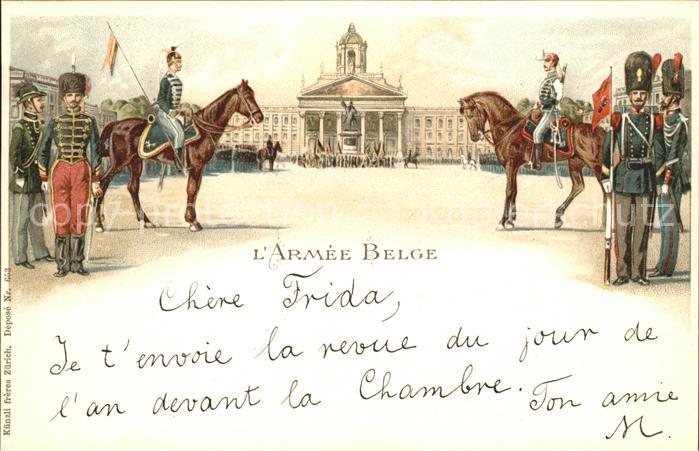 L'ARMÉE BELGE
Chère Frida,
Je t'envoie la revue du jour de
l'an devant la Chambre. Ton amie
M.
Künzli frères Zürich. Déposé Nr. 653
copyright protection Kopierschutz